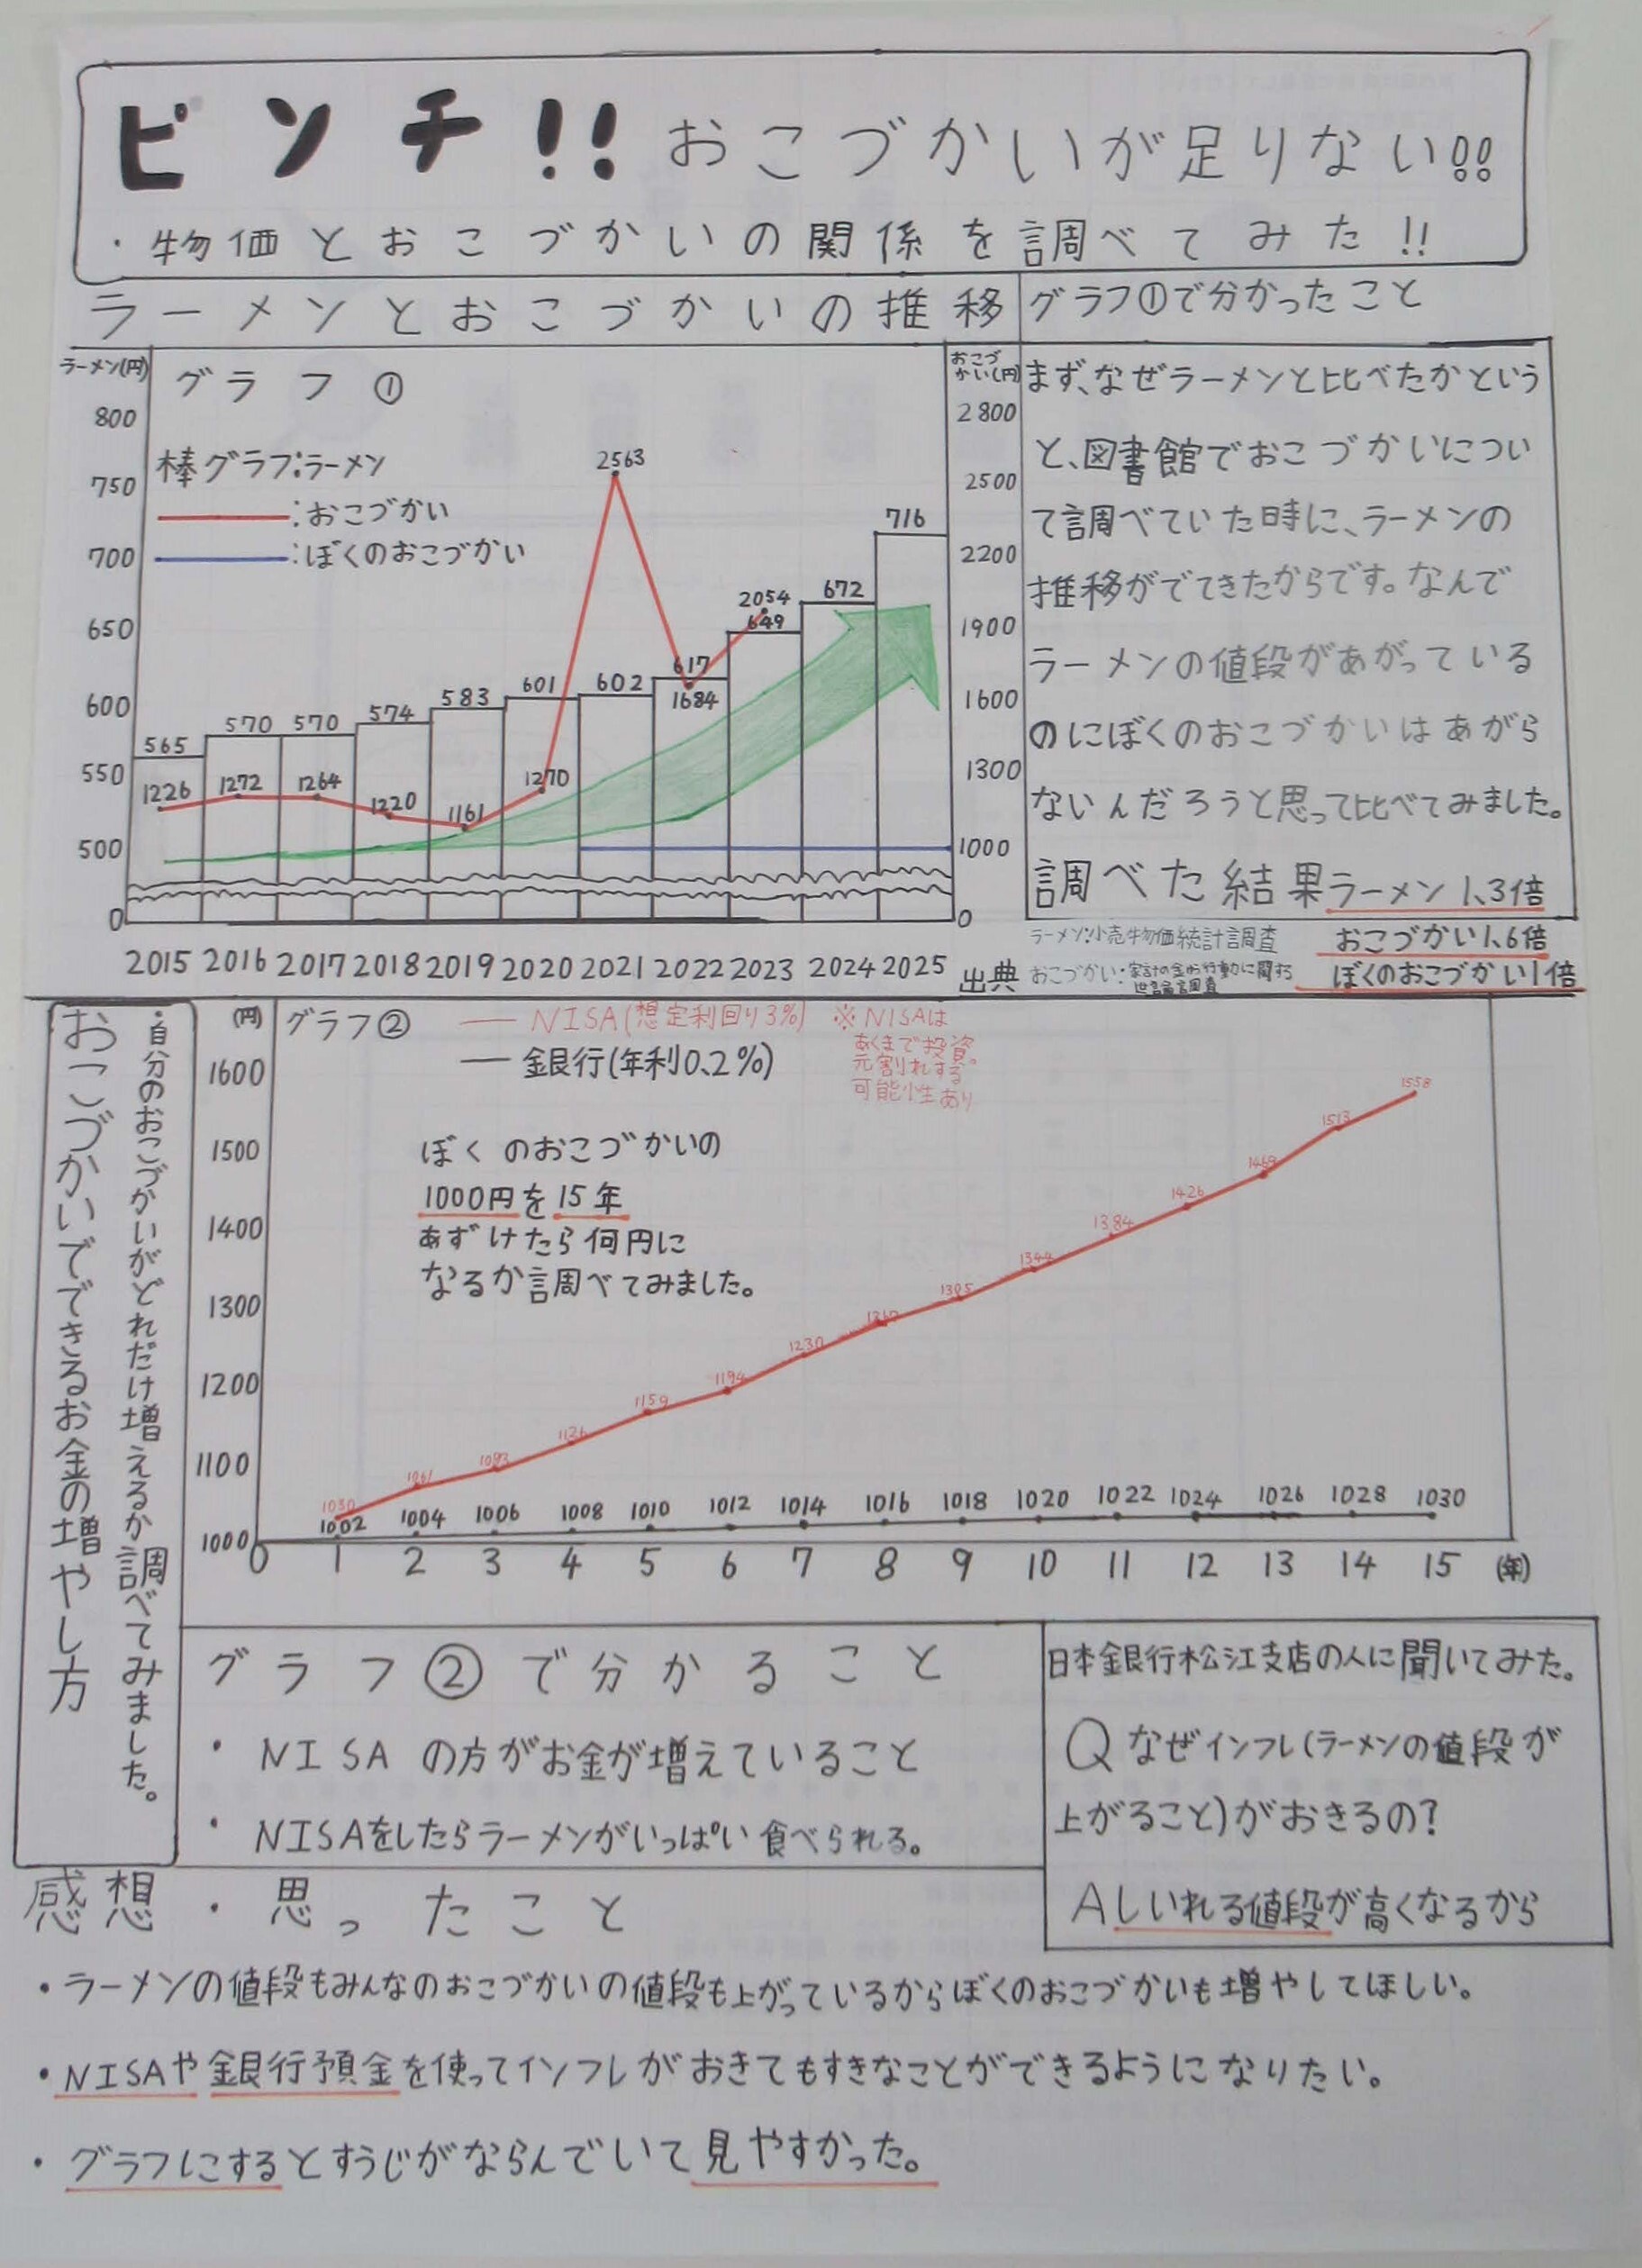 ピンチ!! おこづかいが足りない!!
・物価とおこづかいの関係を調べてみた!!
ラーメンとおこづかいの推移
ラーメン(円)
グラフ①
おこづかい(円)
棒グラフ:ラーメン
:おこづかい
:ぼくのおこづかい
800
750
700
650
600
550
500
0
2800
2500
2200
1900
1600
1300
1000
0
565 570 570 574 583 601 602 617 649 672 716
1226 1272 1264 1220 1161 1270 2563 1684 2054
2015 2016 2017 2018 2019 2020 2021 2022 2023 2024 2025
グラフ①で分かったこと
まず、なぜラーメンと比べたかという
と、図書館でおこづかいについ
て調べていた時に、ラーメンの
推移がでてきたからです。なんで
ラーメンの値段があがっている
のにぼくのおこづかいはあがら
ないんだろうと思って比べてみました。
調べた結果ラーメン1、3倍
おこづかい1、6倍
ぼくのおこづかい1倍
出典
ラーメン:小売物価統計調査
おこづかい・家計の金融行動に関する
世論調査
おこづかいでできるお金の増やし方
・自分のおこづかいがどれだけ増えるか調べてみました。
(円)
グラフ②
NISA(想定利回り3%)
銀行(年利0、2%)
※NISAは
あくまで投資。
元割れする
可能性あり
ぼくのおこづかいの
1000円を15年
あずけたら何円に
なるか調べてみました。
1600
1500
1400
1300
1200
1100
1000
1030 1061 1093 1126 1159 1194 1230 1267 1305 1344 1384 1426 1469 1513 1558
1002 1004 1006 1008 1010 1012 1014 1016 1018 1020 1022 1024 1026 1028 1030
0 1 2 3 4 5 6 7 8 9 10 11 12 13 14 15 (年)
グラフ②で分かること
・NISAの方がお金が増えていること
・NISAをしたらラーメンがいっぱい食べられる。
日本銀行松江支店の人に聞いてみた。
Qなぜインフレ(ラーメンの値段が
上がること)がおきるの?
Aしいれる値段が高くなるから
感想・思ったこと
・ラーメンの値段もみんなのおこづかいの値段も上がっているからぼくのおこづかいも増やしてほしい。
・NISAや銀行預金を使ってインフレがおきてもすきなことができるようになりたい。
・グラフにするとすうじがならんでいて見やすかった。